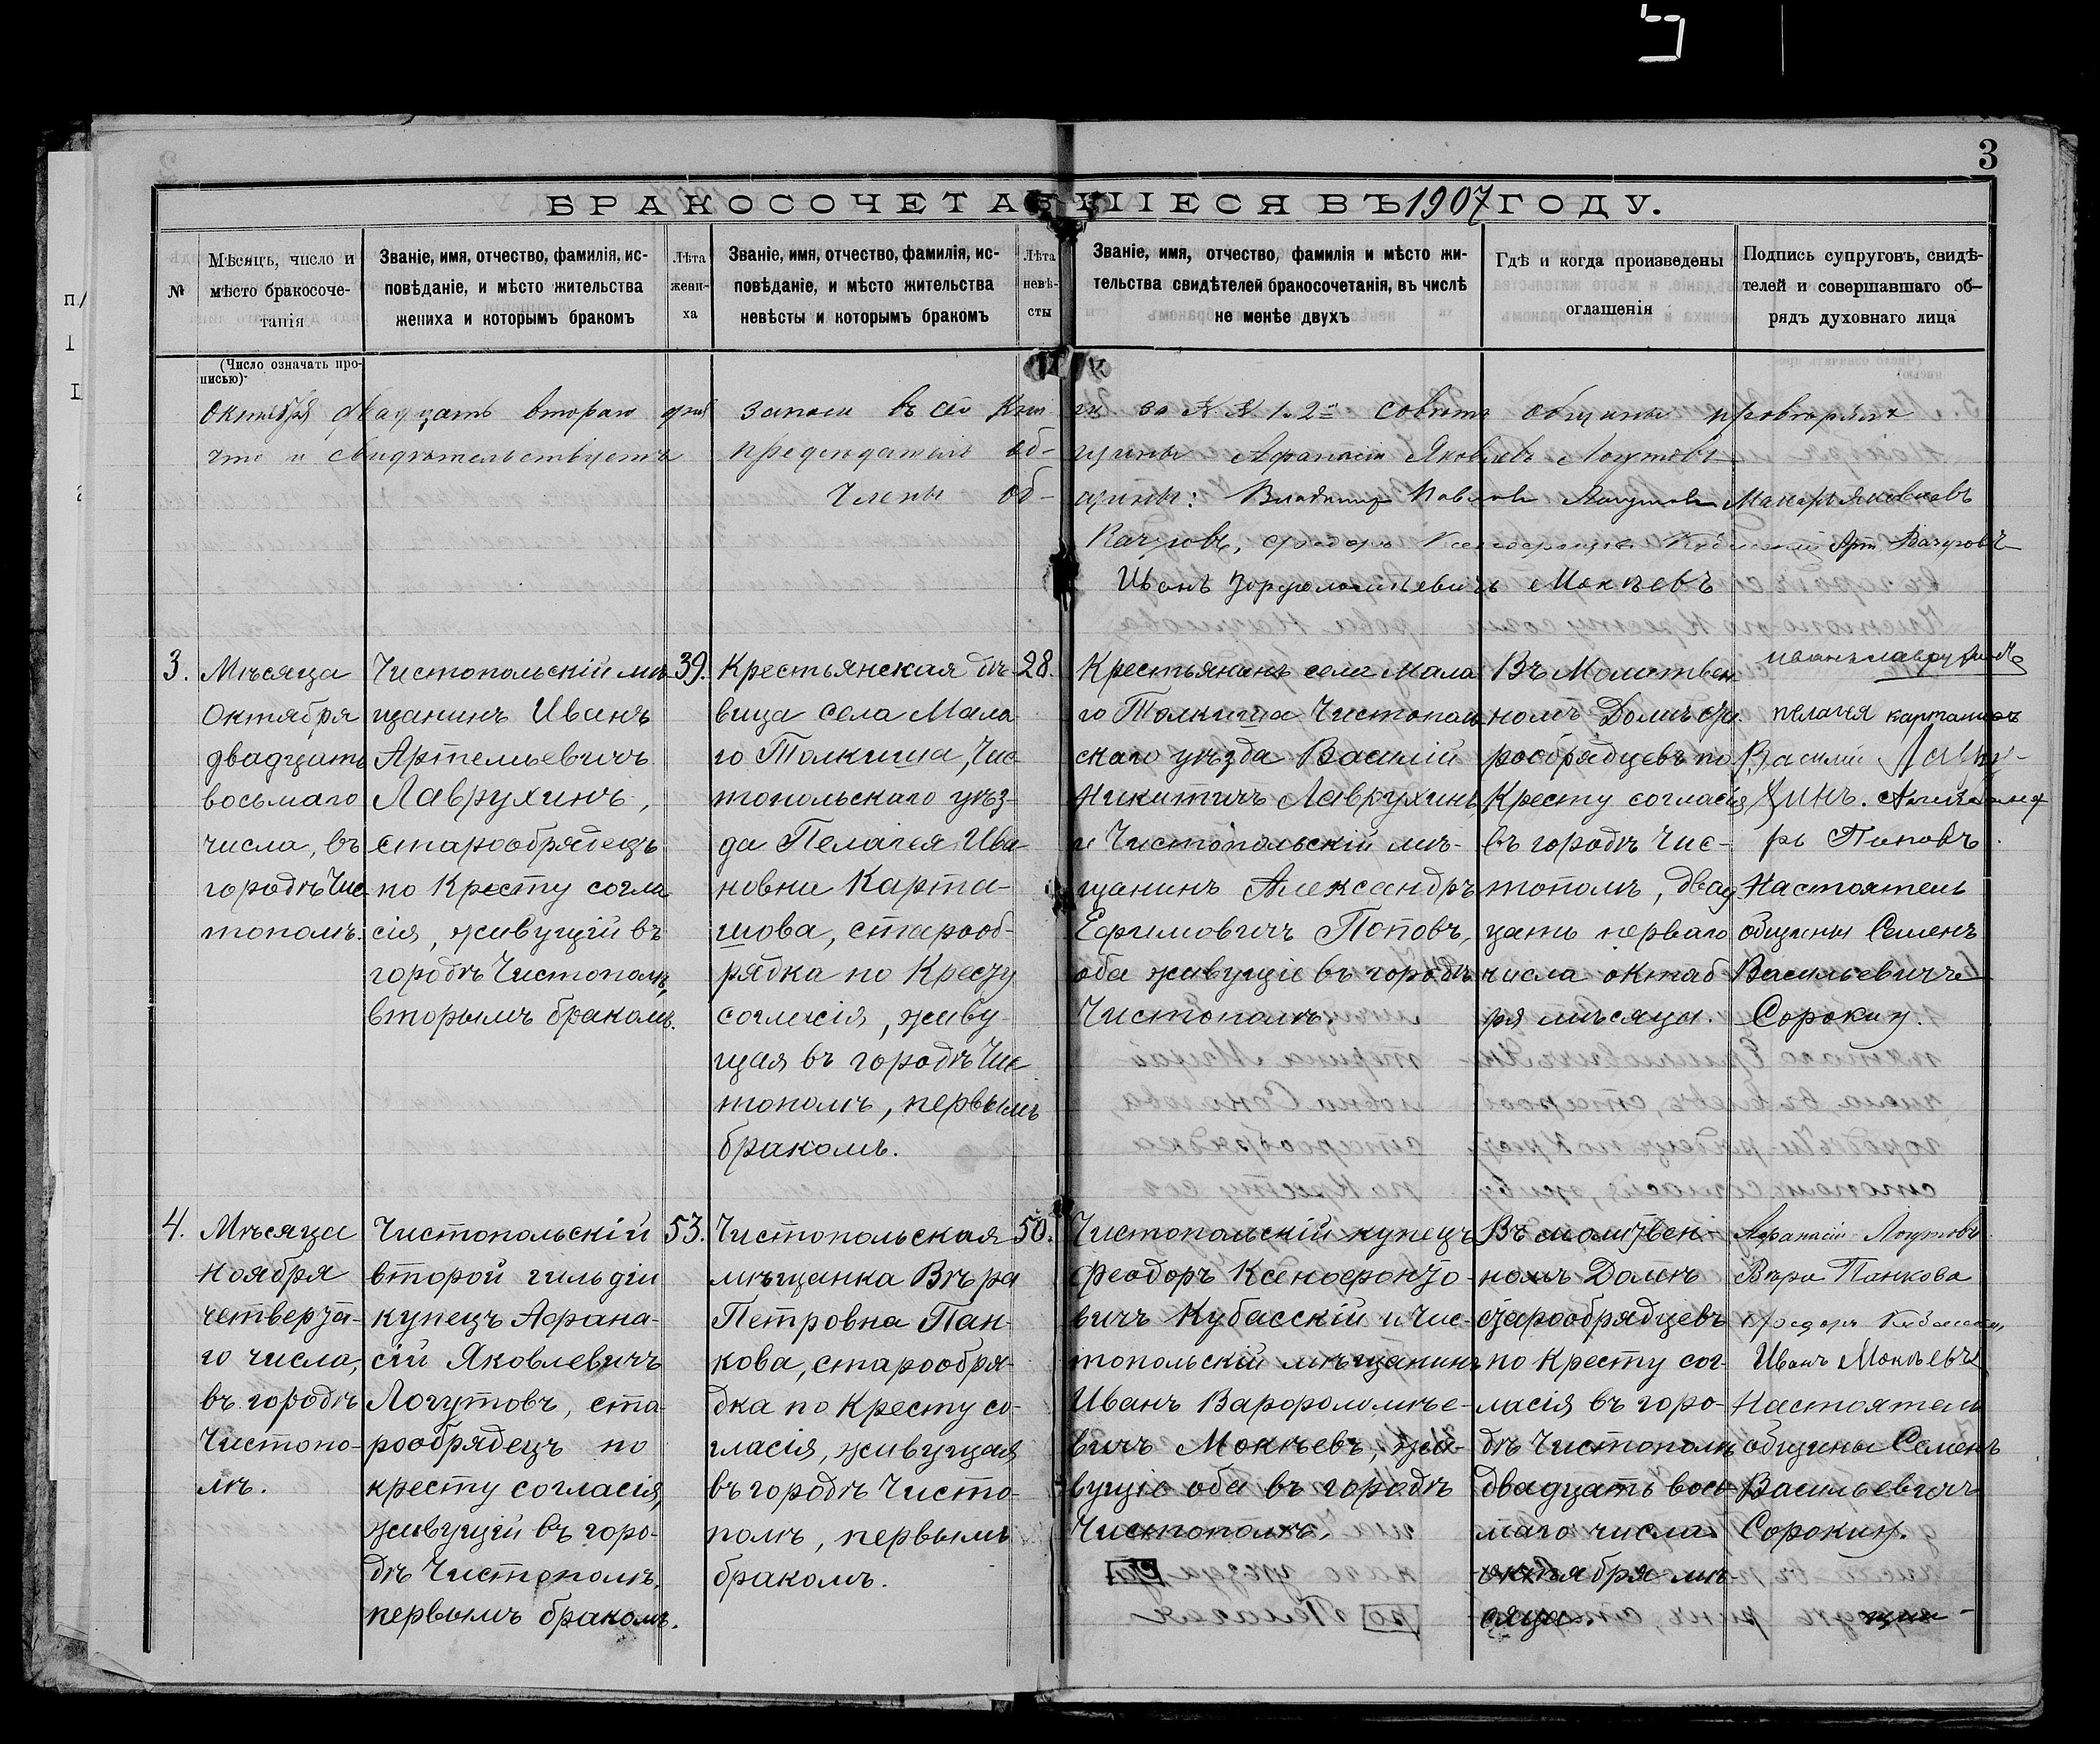 3
БРАКОСОЧЕТАВШІЕСЯ ВЪ 1907 ГОДУ.
№
Мѣсяцъ, число и
мѣсто бракосоче-
танія
Званіе, имя, отчество, фамилія, ис-
повѣданіе, и мѣсто жительства
жениха и которымъ бракомъ
Лѣта
жени-
ха
Званіе, имя, отчество, фамилія, ис-
повѣданіе, и мѣсто жительства
невѣсты и которымъ бракомъ
Лѣта
невѣ-
сты
Званіе, имя, отчество, фамилія и мѣсто жи-
тельства свидѣтелей бракосочетанія, въ числѣ
не менѣе двухъ
Гдѣ и когда произведены
оглашенія
Подпись супруговъ, свидѣ-
телей и совершавшаго об-
рядъ духовнаго лица
(Число означать про-
писью)
Октября двадцать второго дня записи въ сей кни ги за №№ 1 и 2 совѣтъ общины провѣрялъ
что и свидѣтельствуетъ предсѣдатель об- щины Афанасій Яковлевъ Логутовъ
Члены об- щины: Владимир Павлов Логутовъ Макаръ Яковлевъ
Вачуговъ, Федоръ Ксенофонтов Кубасскій
Иванъ Варфоломѣевичъ Мокѣевъ
3.
Мѣсяца
Октября
двадцать
восьмаго
числа, въ
городѣ Чис
тополѣ.
Чистопольскій мѣ
щанинъ Иванъ
Артемьевичъ
Лаврухинъ,
старообрядецъ
по Кресту согла
сія, живущій въ
городѣ Чистополѣ,
вторымъ бракомъ.
39.
Крестьянская дѣ-
вица села Мала
го Толкиша, Чис
топольскаго уѣз-
да Пелагея Ива
новна Карта-
шова, старооб-
рядка по Кресту
согласія, живу
щая въ городѣ Чис
тополѣ, первымъ
бракомъ.
28.
Крестьянинъ села Мала
го Толкиша Чистополь
скаго уѣзда Василій
Никитичъ Лаврухинъ,
и Чистопольскій мѣ-
щанинъ Александръ
Ефимовичъ Поповъ,
оба живущіе въ городѣ
Чистополѣ.
Въ Молитвен
номъ Домѣ ста
рообрядцевъ по
Кресту согласія,
въ городѣ Чис-
тополѣ, двад
цать перваго
числа октяб
ря мѣсяца.
Иванъ Лаврухинъ
пелагея карташовъ
Василій Лавру-
хинъ. Александ
ръ Поповъ.
Настоятель
общины Семенъ
Васильевичъ
Сорокинъ.
4.
Мѣсяца
Ноября
четверта-
го числа,
въ городѣ
Чистопо-
лѣ.
Чистопольскій
второй гильдіи
купецъ Афана-
сій Яковлевичъ
Логутовъ, ста-
рообрядецъ по
кресту согласія,
живущій въ горо-
дѣ Чистополѣ,
первымъ бракомъ.
53.
Чистопольская
мѣщанка Вѣра
Петровна Пан-
кова, старообря-
дка по Кресту со-
гласія, живущая
въ городѣ Чисто-
полѣ, первымъ
бракомъ.
50.
Чистопольскій купецъ
Феодоръ Ксенофонто-
вичъ Кубасскій и Чис-
топольскій мѣщанинъ
Иванъ Варфоломѣе-
вичъ Мокѣевъ, жи-
вущіе оба въ городѣ
Чистополѣ.
Въ молитвен
номъ Домѣ
старообрядцевъ
по Кресту сог-
ласія въ горо-
дѣ Чистополѣ
двадцать вось-
маго числа
октября мѣ
сяца.
Афанасій Логутовъ
Вѣра Панкова
Федоръ Кубасскій
Иванъ Мокѣевъ
Настоятель
общины Семенъ
Васильевичъ
Сорокинъ.